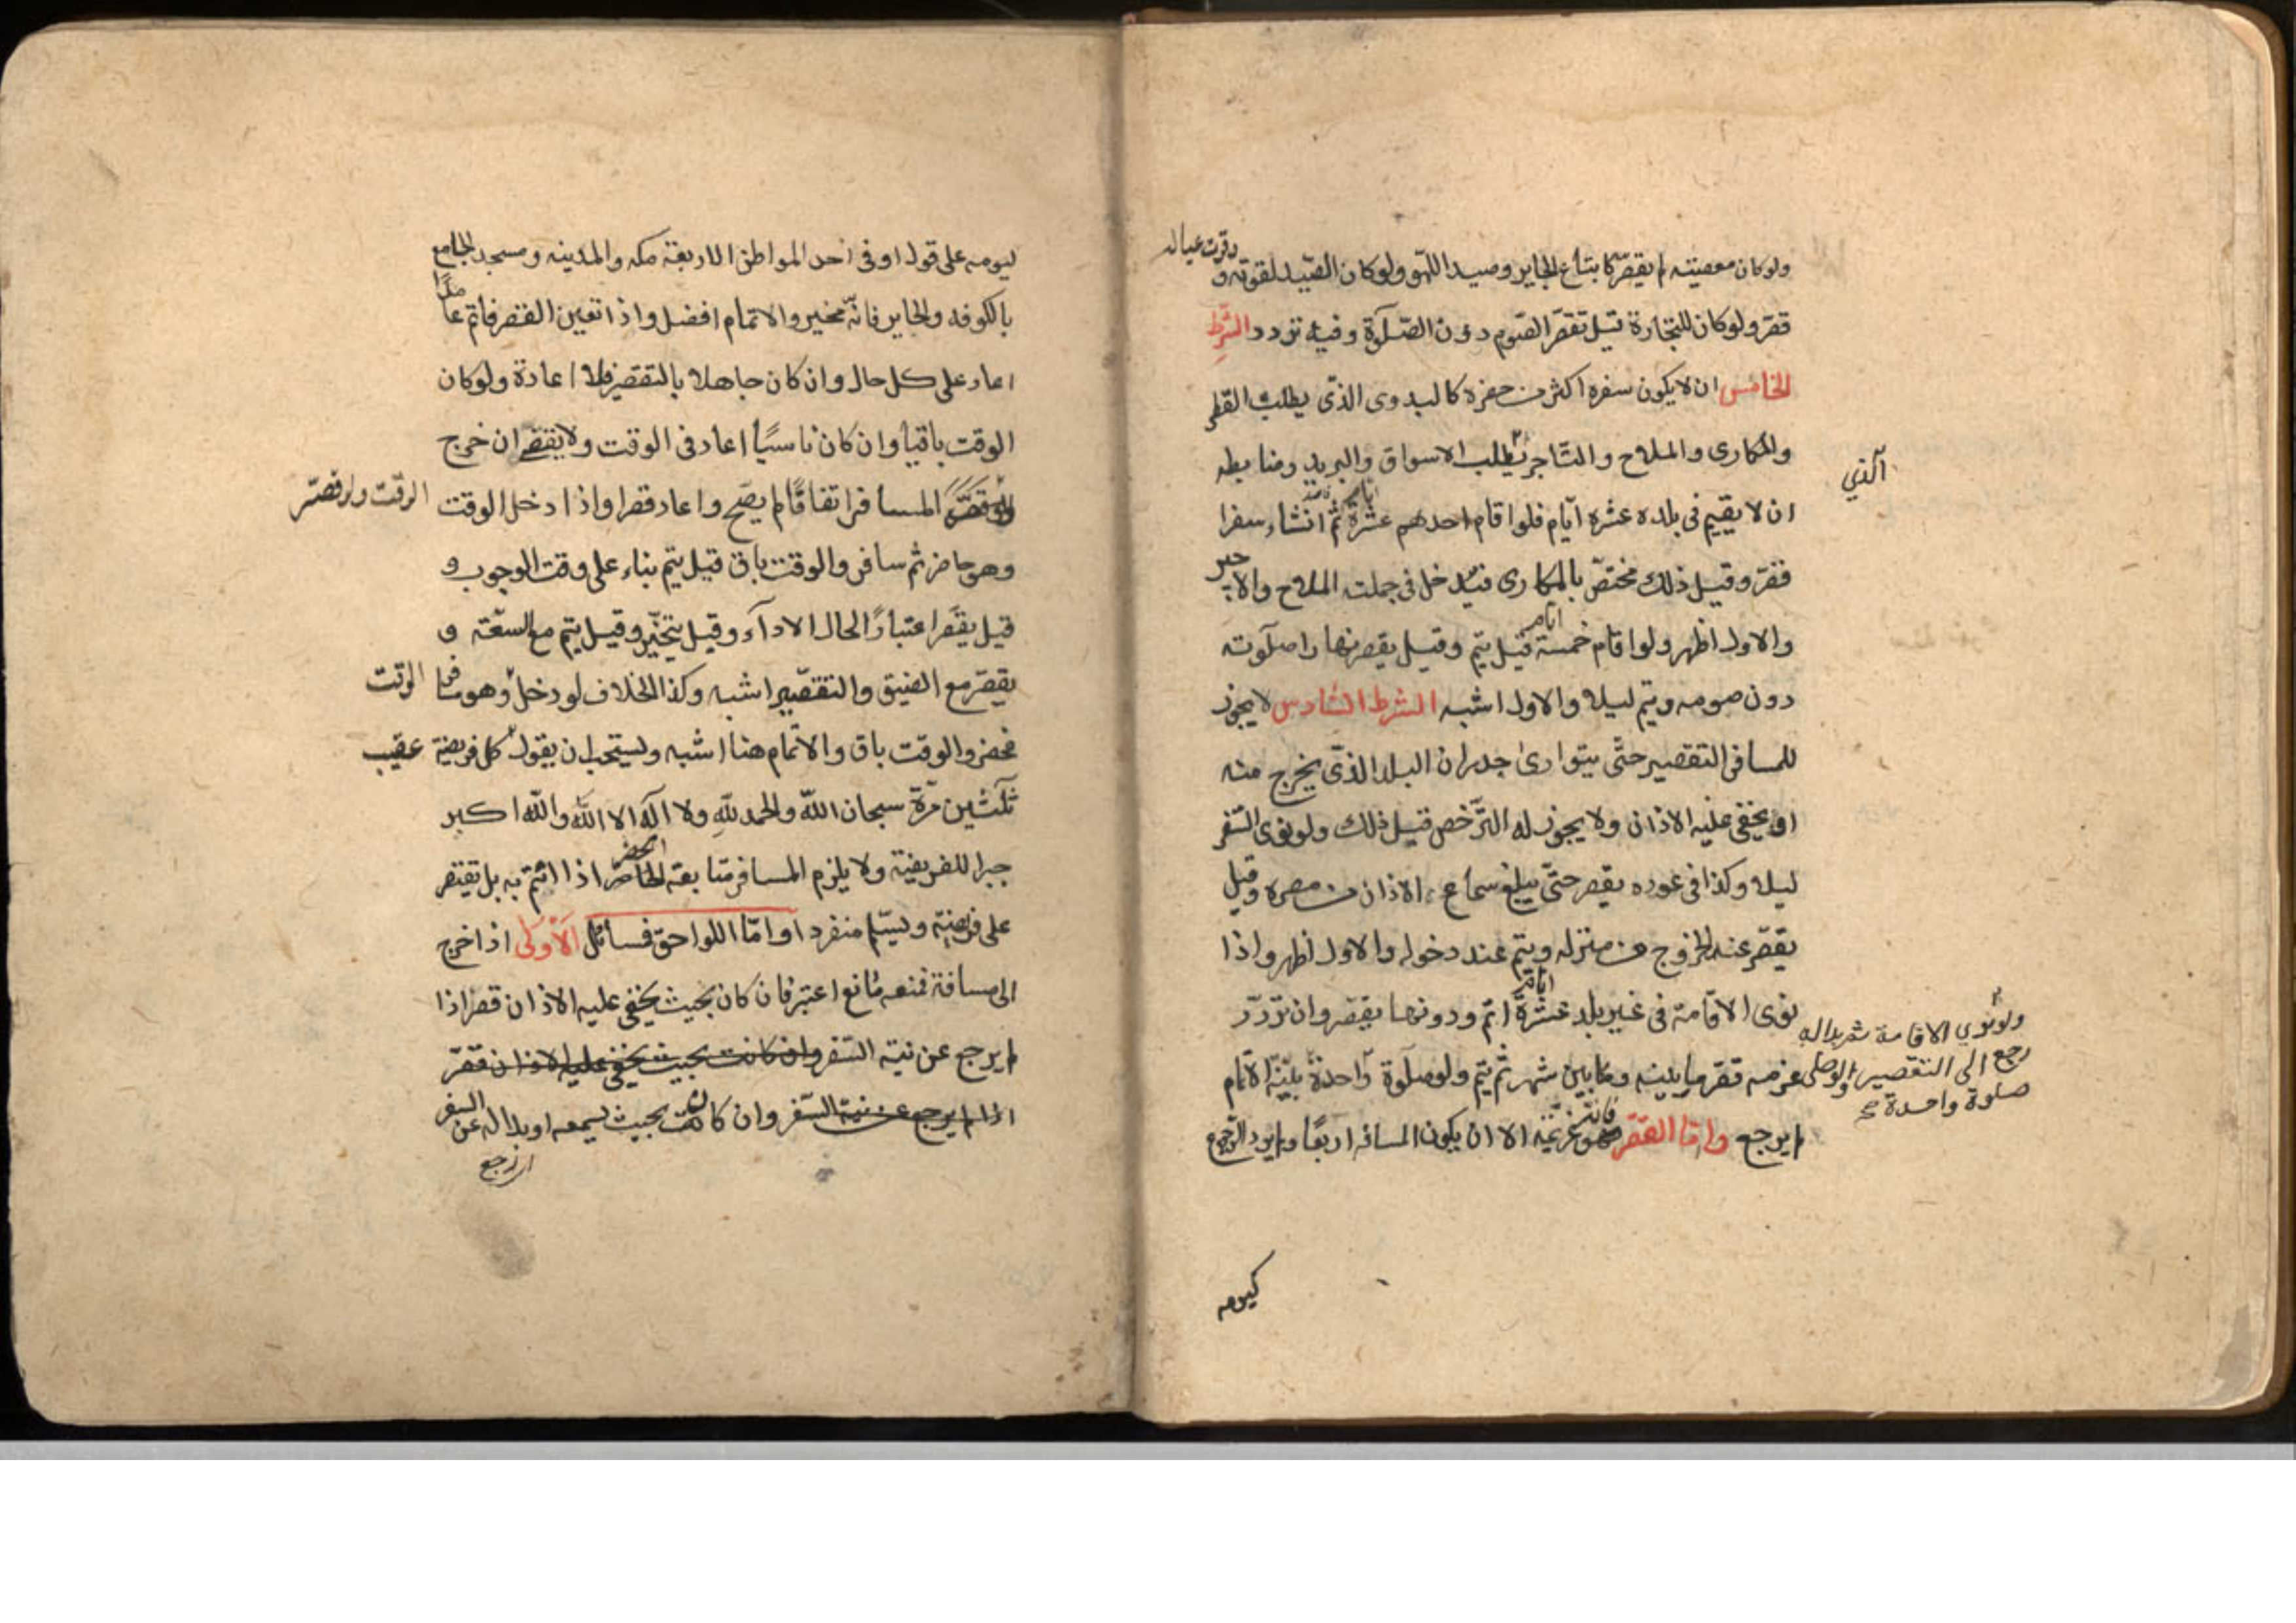 ولو كان معصيته لم يقصر كاتباع الجاير وصيد اللهو ولو كان الصيد لقوته و
وقوت عياله
قصر ولو كان للتجارة قيل تقصر الصوم دون الصلوة وفيه تردد الشرط
الخامس ان لا يكون سفره اكثر من حضره كالبدوى الذى يطلب القطر
والمكارى والملاح والتاجر يطلب الاسواق والبريد وضابطه
الذي
ان لا يقيم فى بلده عشره ايام فلو اقام احدهم عشرة ثم انشاء سفرا
قصر وقيل ذلك مختص بالمكارى فيدخل فى جملته الملاح والاجير
والاول اظهر ولو اقام خمسة ايام قيل يتم وقيل يقصر نهارا صلوته
دون صومه ويتم ليلا والاول اشبه الشرط السادس لا يجوز
للمسافر التقصير حتى يتوارى جدران البلد الذى يخرج منه
او يخفى عليه الاذان ولا يجوز له الترخص قبل ذلك ولو نوى السفر
ليلا وكذا فى عوده يقصر حتى يبلغ سماع الاذان من مصره وقيل
يقصر عند الخروج من منزله ويتم عند دخوله والاول اظهر واذا
نوى الاقامة فى غير بلده عشرة ايام اتم ودونها يقصر وان تردد
عزمه قصر ما بينه وما بين شهر ثم يتم ولو صلوة واحدة بنية الاتمام
ولو نوي الاقامة ثم بدا له
رجع الى التقصير ولو صلى
صلوة واحدة صح
لم يرجع واما القصر فانه عزيمة الا ان يكون المسافر اربعا ولم يرد الرجوع
ليومه
ليومه على قول او فى احد المواطن الاربعة مكه والمدينه ومسجد الجامع
بالكوفه والحاير فانه مخير والاتمام افضل واذا تعين القصر فاتم عامدا
اعاد على كل حال وان كان جاهلا بالتقصير فلا اعادة ولو كان
الوقت باقيا وان كان ناسيا اعاد فى الوقت ولا يقضى ان خرج
الوقت ولو قصر
ولو قصر المسافر اتفاقا لم يصح واعاد قصرا واذا دخل الوقت
وهو حاضر ثم سافر والوقت باق قيل يتم بناء على وقت الوجوب و
قيل يقصر اعتبارا لحال الاداء وقيل يتخير وقيل يتم مع السعة و
يقصر مع الضيق والتقصير اشبه وكذا الخلاف لو دخل وهو مسافر
الوقت
فحضر والوقت باق والاتمام هنا اشبه ويستحب ان يقول كل فريضة
عقيب
ثلثين مرة سبحان الله والحمد لله ولا اله الا الله والله اكبر
جبرا للفريضة ولا يلزم المسافر متابعة الحاضر اذا ائتم به بل يقتصر
على فرضه ويسلم منفردا واما اللواحق فسائل الاولى اذا خرج
الى مسافة فمنعه مانع اعتبر فان كان بحيث يخفى عليه الاذان قصر اذا
لم يرجع عن نية السفر وان كانت بحيث يخفى عليه الاذان قصر
اذا لم يرجع عن نية السفر وان كان بحيث يسمعه او بدا له عن السفر